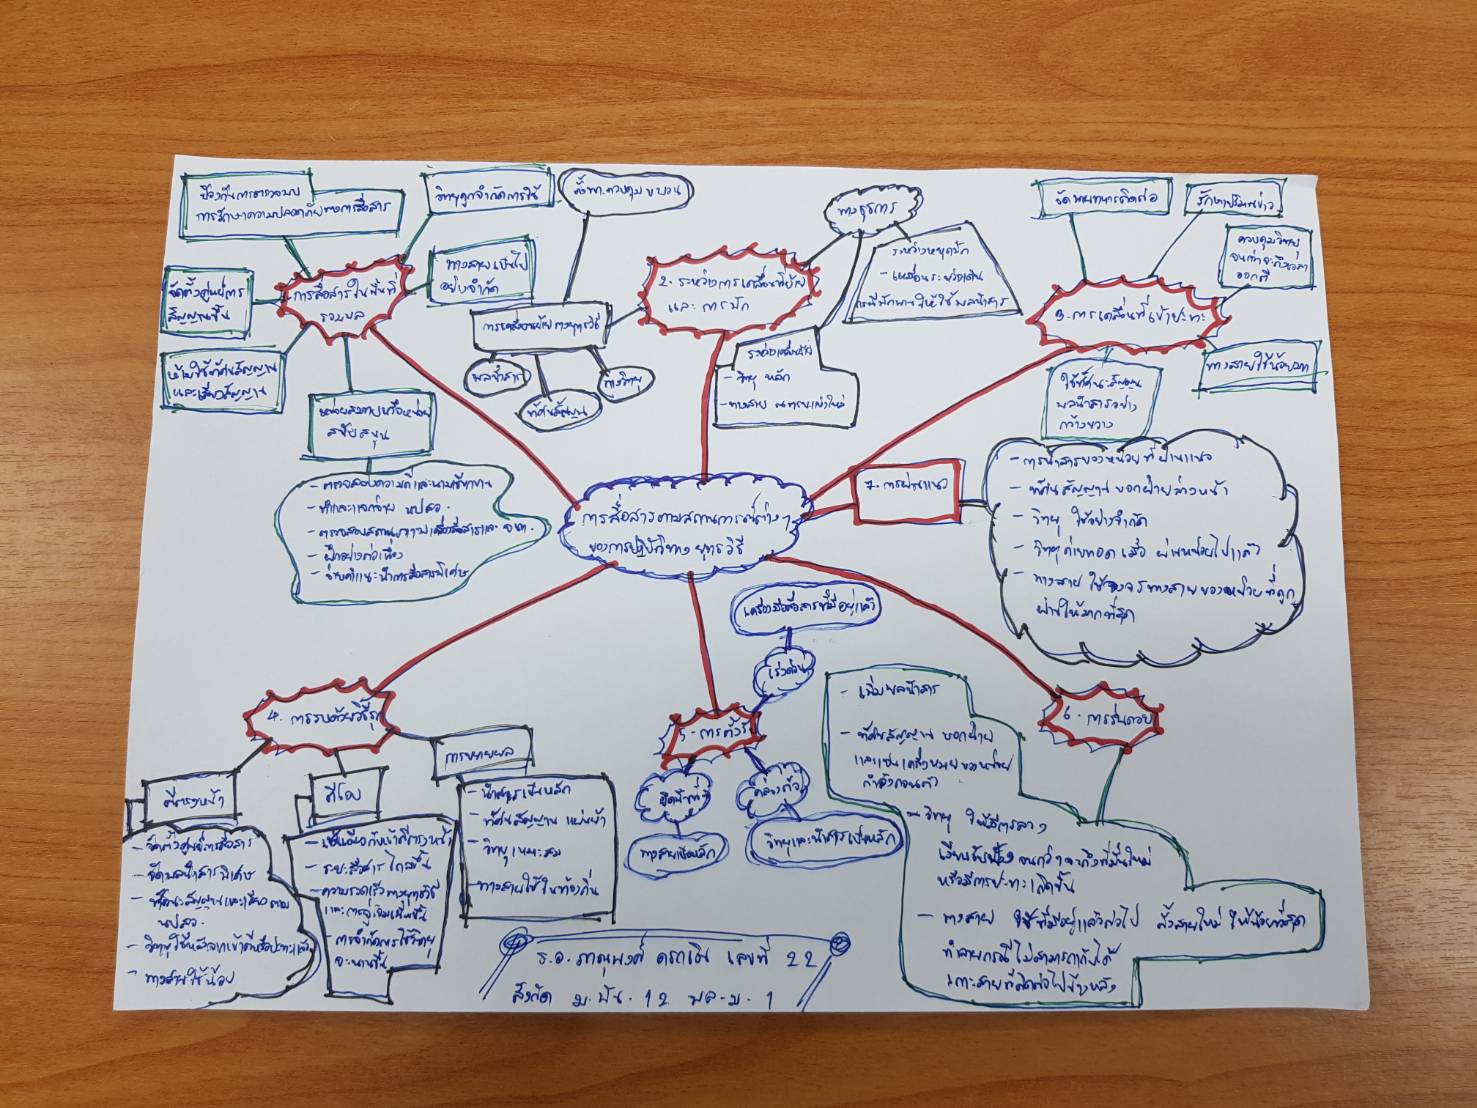 ป้องกันการตรวจพบ
การรักษาความปลอดภัยทางการสื่อสาร
วิทยุถูกจำกัดการใช้
จัดตั้งศูนย์การ
สัญญาณขึ้น
1. การสื่อสารในพื้นที่
รวมพล
ทางสายเป็นไป
อย่างจำกัด
ห้ามใช้ทัศนสัญญาณ
และเสียงสัญญาณ
หน่วยสมทบหรือหน่วย
สนับสนุน
- ตรวจสอบความถี่และนามเรียกขาน
- ทำและแจกจ่าย นปสอ.
- ตรวจสอบสถานภาพเครื่องสื่อสารและ จนท.
- ฝึกอย่างต่อเนื่อง
- จ่ายคำแนะนำการสื่อสารพิเศษ
ตั้ง ทก.ควบคุมขบวน
2. ระหว่างการเคลื่อนที่
และ การพัก
การเคลื่อนย้ายทางยุทธวิธี
พลนำสาร
ทัศนสัญญาณ
วิทยุ
ทางธุรการ
ระหว่างหยุดพัก
- เหมือนระหว่างเดิน
กรณีพักนาน ให้ใช้ พลนำสาร
ระหว่างเคลื่อนที่
- วิทยุ หลัก
- ทางสาย
จัดนายทหารติดต่อ
รักษาปริมาณข่าว
ควบคุมวิทยุ
จนกว่าจะถึงเวลา
ออกตี
3. การเคลื่อนที่เข้าปะทะ
ใช้ทัศนะสัญญาณ
พลนำสารอย่าง
กว้างขวาง
ทางสายใช้น้อยมาก
การสื่อสารตามสถานการณ์ต่างๆ
ของการปฏิบัติทางยุทธวิธี
7. การผ่านแนว
- การนำสารของหน่วยที่ผ่านแนว
- ทัศนสัญญาณ บอกฝ่าย
- วิทยุ ใช้อย่างจำกัด
- วิทยุถ่ายทอด เมื่อ ผ่านหน่วยไปแล้ว
- ทางสาย ใช้วงจรทางสายของหน่วยที่ถูก
ผ่านให้มากที่สุด
4. การรบด้วยวิธีรุก
ตีตรงหน้า
- จัดตั้งศูนย์การสื่อสาร
- จัดพลนำสารพิเศษ
- ทัศนะสัญญาณและเสียง ตาม
นปสอ.
- วิทยุใช้หลังจากเข้าตีหรือปะทะแล้ว
- ทางสายใช้น้อย
ตีโอบ
- เช่นเดียวกับเข้าตีตรงหน้า
- ระยะสื่อสารไกลขึ้น
- ความรวดเร็วทางยุทธวิธี
- การจำกัดการใช้วิทยุ
จะนานขึ้น
การขยายผล
- นำสารเป็นหลัก
- ทัศนสัญญาณ แผ่นผ้า
- วิทยุเหมาะสม
- ทางสายใช้ในท้องถิ่น
5. การตั้งรับ
เร่งด่วน
เครื่องมือสื่อสารที่มีอยู่แล้ว
ยึดพื้นที่
ทางสายเป็นหลัก
คล่องตัว
วิทยุและนำสารเป็นหลัก
6. การร่นถอย
- เพิ่มพลนำสาร
- ทัศนสัญญาณ บอกฝ่าย
กำลังถอนตัว
- วิทยุ ให้มีการลวง
เงียบรับฟัง จนกว่าจะถึงที่มั่นใหม่
หรือมีการปะทะเกิดขึ้น
- ทางสาย ใช้ที่มีอยู่แล้วต่อไป ตั้งสายใหม่ ให้น้อยที่สุด
ทำลายกรณีไม่สามารถเก็บได้
ร.อ. ภาณุพงศ์ เลขที่ 22
สังกัด ม.พัน.12 พล.ม.1